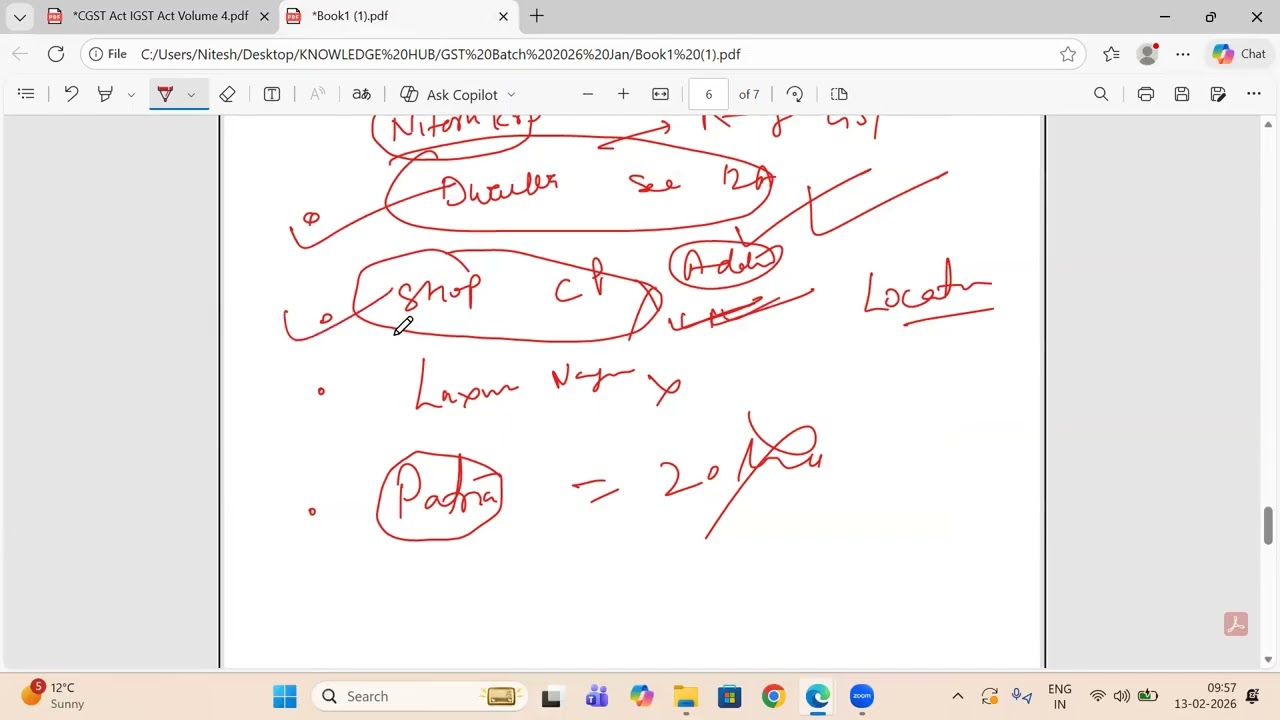 *CGST Act IGST Act Volume 4.pdf
*Book1 (1).pdf
File
C:/Users/Nitesh/Desktop/KNOWLEDGE%20HUB/GST%20Batch%202026%20Jan/Book1%20(1).pdf
Chat
Ask Copilot
6 of 7
Sec 12A
Shop CP
Location
Laxmi Nagar X
= 20
5
12°C
Sunny
Search
zoom
ENG
IN
09:57
13-02-2026